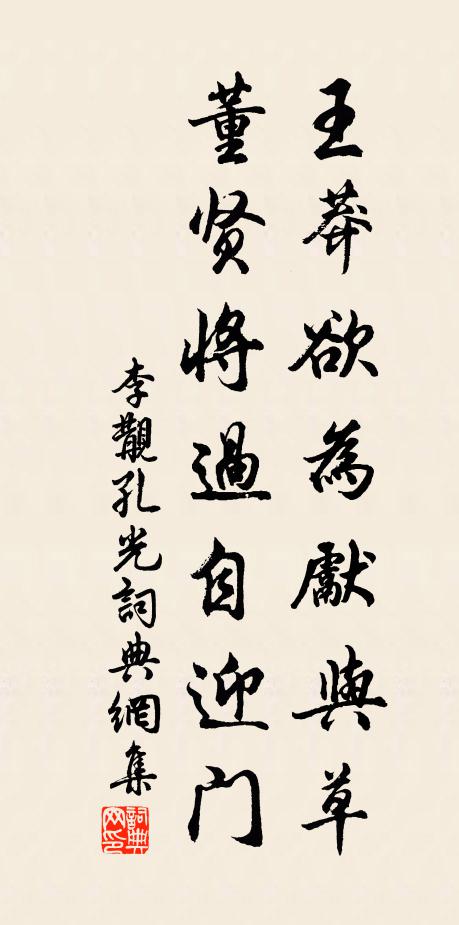 王莽欲為獻與草
董贤將過自迎门
李觀孔光詞典網集
詞典网印